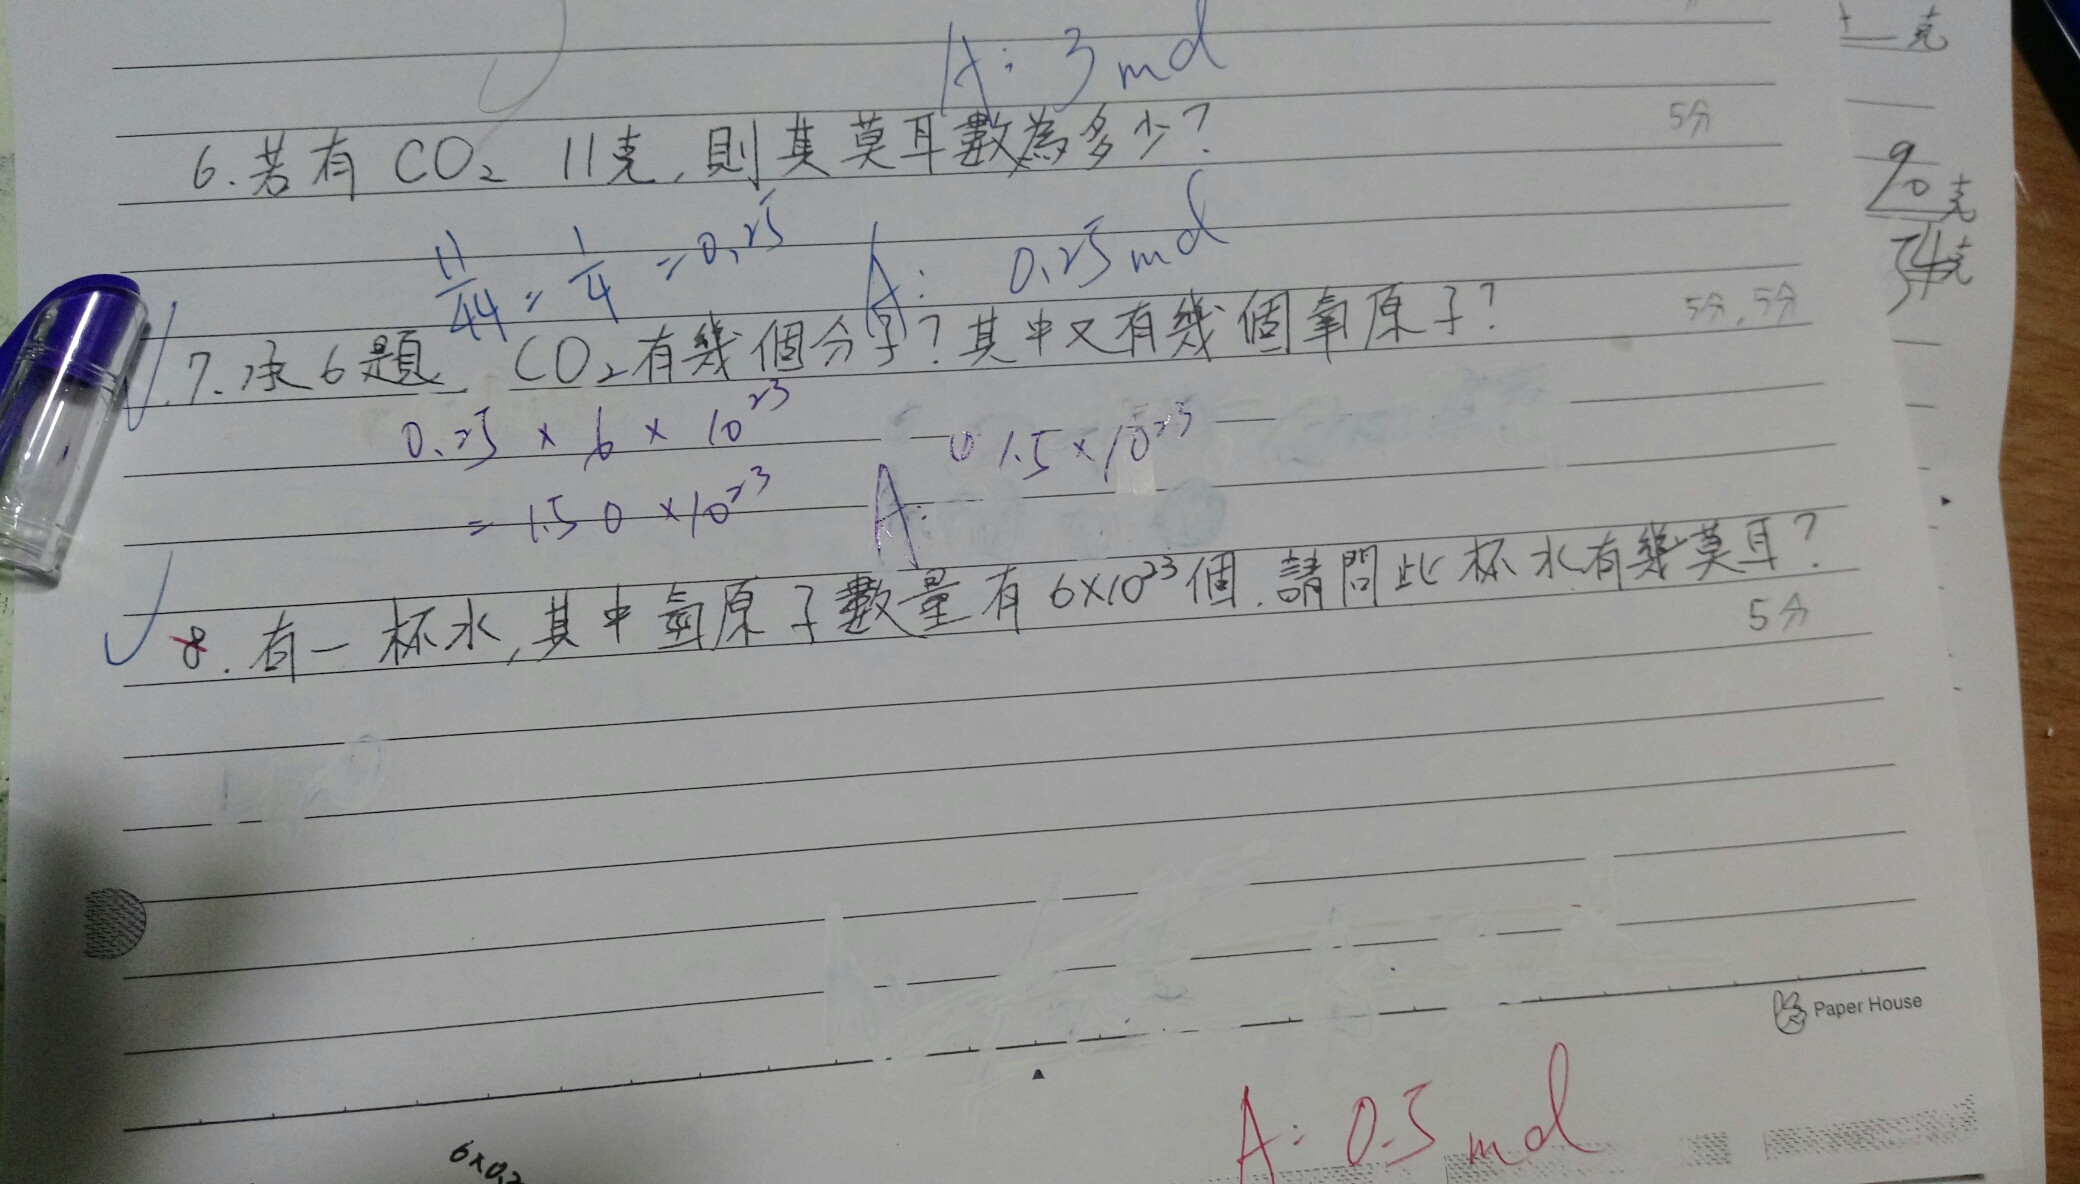 A: 3 mol
6. 若有 CO₂ 11克, 則其莫耳數為多少? 5分
11/44 = 1/4 = 0.25 A: 0.25 mol
7. 承6題 CO₂有幾個分子? 其中又有幾個氧原子? 5分, 5分
0.25 × 6 × 10²³
= 1.50 × 10²³ A: 1.5 × 10²³
8. 有一杯水, 其中氫原子數量有 6×10²³個, 請問此杯水有幾莫耳?
5分
Paper House
A: 0.5 mol
克
90克
54克